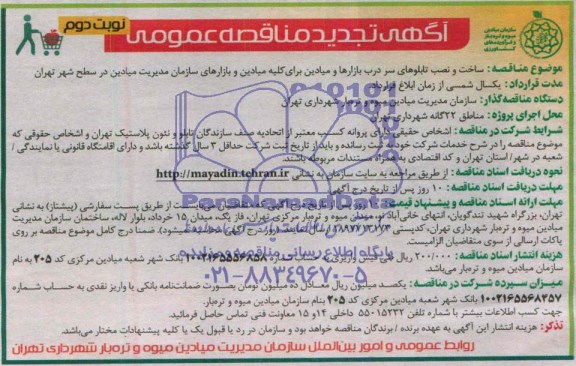 سازمان مدیریت میادین
میوه و تره‌بار
و فرآورده‌های
کشاورزی
آگهی تجدید مناقصه عمومی
نوبت دوم
موضوع مناقصه: ساخت و نصب تابلوهای سر درب بازارها و میادین برای کلیه میادین و بازارهای سازمان مدیریت میادین در سطح شهر تهران
مدت قرارداد: یکسال شمسی از زمان ابلاغ قرارداد
دستگاه مناقصه‌گذار: سازمان مدیریت میادین میوه و تره‌بار شهرداری تهران
محل اجرای پروژه: مناطق ۲۲گانه شهرداری تهران
شرایط شرکت در مناقصه: اشخاص حقیقی دارای پروانه کسب معتبر از اتحادیه صنف سازندگان تابلو و نئون پلاستیک تهران و اشخاص حقوقی که
موضوع مناقصه را در شرح خدمات شرکت خود به ثبت رسانده و باید از تاریخ ثبت شرکت حداقل ۳ سال گذشته باشد و دارای اقامتگاه قانونی یا نمایندگی /
شعبه در شهر/ استان تهران و کد اقتصادی به همراه مستندات مربوطه باشند.
نحوه دریافت اسناد مناقصه: از طریق مراجعه به سایت سازمان به نشانی http://mayadin.tehran.ir
مهلت دریافت اسناد مناقصه: ۱۰ روز پس از تاریخ درج آگهی
مهلت ارائه اسناد مناقصه و پیشنهاد قیمت: روز پس از تاریخ از طریق پست سفارشی (پیشتاز) به نشانی
تهران، بزرگراه شهید تندگویان، انتهای خانی‌آباد نو، میدان میوه و تره‌بار مرکزی تهران، فاز یک، میدان ۱۵ خرداد، بلوار لاله، ساختمان سازمان مدیریت
میادین میوه و تره‌بار شهرداری تهران، کدپستی ضمنا درج کامل موضوع مناقصه بر روی
پاکات ارسالی از سوی متقاضیان الزامیست.
هزینه انتشار اسناد مناقصه: ۲۰۰/۰۰۰ ریال به حساب شماره ۱۰۰۲۱۶۵۵۵۶۸۵۸ بانک شهر شعبه میادین مرکزی کد ۲۰۵ به نام
سازمان میادین میوه و تره‌بار می‌باشد.
میزان سپرده شرکت در مناقصه: یکصد میلیون ریال معادل ده میلیون تومان بصورت ضمانت‌نامه بانکی یا واریز نقدی به حساب شماره
۱۰۰۲۱۶۵۵۶۸۳۵۷ بانک شهر شعبه میادین مرکزی کد ۲۰۵ بنام سازمان میادین میوه و تره‌بار.
جهت کسب اطلاعات بیشتر با شماره تلفن ۵۵۰۱۵۲۳۲ داخلی ۱۴ و ۱۵ معاونت فنی تماس حاصل فرمائید.
تذکر: هزینه انتشار این آگهی به عهده برنده / برندگان مناقصه خواهد بود و سازمان در رد یا قبول یک یا کلیه پیشنهادات مختار می‌باشد.
روابط عمومی و امور بین‌الملل سازمان مدیریت میادین میوه و تره‌بار شهرداری تهران
ParsNamadData
پایگاه اطلاع رسانی مناقصه و مزایده
۰۲۱-۸۸۳۴۹۶۷۰-۵